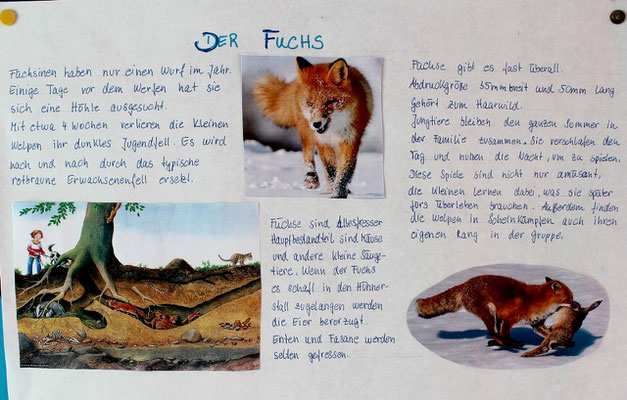 DER FUCHS
Fuchsinen haben nur einen Wurf im Jahr.
Einige Tage vor dem Werfen hat sie
sich eine Höhle ausgesucht.
Mit etwa 4 Wochen verlieren die Kleinen
Welpen ihr dunkles Jugendfell. Es wird
nach und nach durch das typische
rotbraune Erwachsenenfell ersetzt.
Füchse sind Allesfresser
Hauptbestandteil sind Mäuse
und andere kleine Säuge-
tiere. Wenn der Fuchs
es schaft in den Hühner-
stall zugelangen werden
die Eier bevorzugt.
Enten und Fasane werden
selten gefressen.
Füchse gibt es fast überall.
Abdruckgröße 35mm breit und 50mm lang.
Gehört zum Haarwild.
Jungtiere bleiben den ganzen Sommer in
der Familie zusammen. Sie verschlafen den
Tag und nutzen die Nacht, um zu spielen.
Diese Spiele sind nicht nur amüsant,
die Kleinen lernen dabei, was sie später
fürs Überleben brauchen. Außerdem finden
die Welpen in Scheinkämpfen auch ihren
eigenen Rang in der Gruppe.